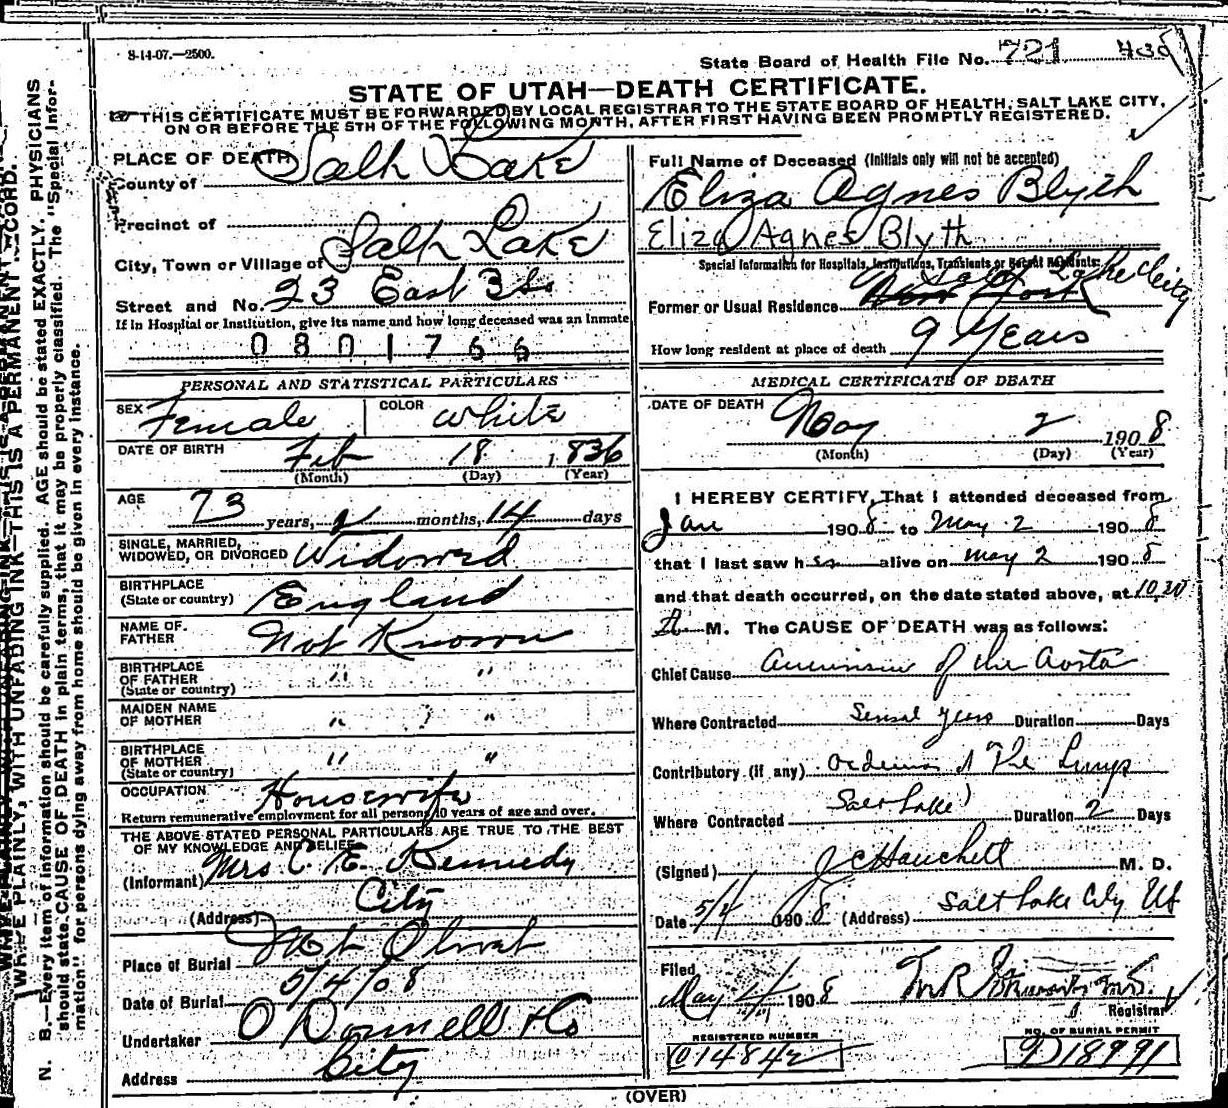 8-14-07.—2500.
State Board of Health File No. 721 430
STATE OF UTAH—DEATH CERTIFICATE.
THIS CERTIFICATE MUST BE FORWARDED BY LOCAL REGISTRAR TO THE STATE BOARD OF HEALTH, SALT LAKE CITY,
ON OR BEFORE THE 5TH OF THE FOLLOWING MONTH, AFTER FIRST HAVING BEEN PROMPTLY REGISTERED.
WRITE PLAINLY, WITH UNFADING INK—THIS IS A PERMANENT RECORD.
N. B.—Every item of information should be carefully supplied. AGE should be stated EXACTLY. PHYSICIANS
should state CAUSE OF DEATH in plain terms, that it may be properly classified. The "Special Infor-
mation" for persons dying away from home should be given in every instance.
PLACE OF DEATH
County of Salt Lake
Precinct of
City, Town or Village of Salt Lake
Street and No. 23 East 3 So
If in Hospital or Institution, give its name and how long deceased was an inmate
0801766
PERSONAL AND STATISTICAL PARTICULARS
SEX Female COLOR White
DATE OF BIRTH Feb 18 1836
(Month) (Day) (Year)
AGE 73 years, 2 months, 14 days
SINGLE, MARRIED,
WIDOWED, OR DIVORCED Widowed
BIRTHPLACE
(State or country) England
NAME OF
FATHER Not Known
BIRTHPLACE
OF FATHER " "
(State or country)
MAIDEN NAME
OF MOTHER " ? "
BIRTHPLACE
OF MOTHER " "
(State or country)
OCCUPATION Housewife
Return remunerative employment for all persons 10 years of age and over.
THE ABOVE STATED PERSONAL PARTICULARS ARE TRUE TO THE BEST
OF MY KNOWLEDGE AND BELIEF
(Informant) Mrs C. E. Kennedy
(Address) City
Place of Burial Mt Olivet
Date of Burial 5/4/08
Undertaker O Donnell & Co
Address City
Full Name of Deceased (Initials only will not be accepted)
Eliza Agnes Blyth
Eliza Agnes Blyth
Special Information for Hospitals, Institutions, Transients or Recent Residents:
Former or Usual Residence New York Salt Lake City
How long resident at place of death 9 Years
MEDICAL CERTIFICATE OF DEATH
DATE OF DEATH May 2 1908
(Month) (Day) (Year)
I HEREBY CERTIFY, That I attended deceased from
Jan 1908 to May 2 1908
that I last saw her alive on May 2 1908
and that death occurred, on the date stated above, at 10.30
M. The CAUSE OF DEATH was as follows:
Chief Cause Aneurism of the Aorta
Where Contracted Several years Duration Days
Contributory (if any) Oedema of The Lungs
Where Contracted Salt Lake Duration 2 Days
(Signed) J C Hanchett M. D.
Date 5/4 1908 (Address) Salt Lake City Ut
Filed
May 4 1908
Registrar
REGISTERED NUMBER
014842
NO. OF BURIAL PERMIT
D18991
(OVER)